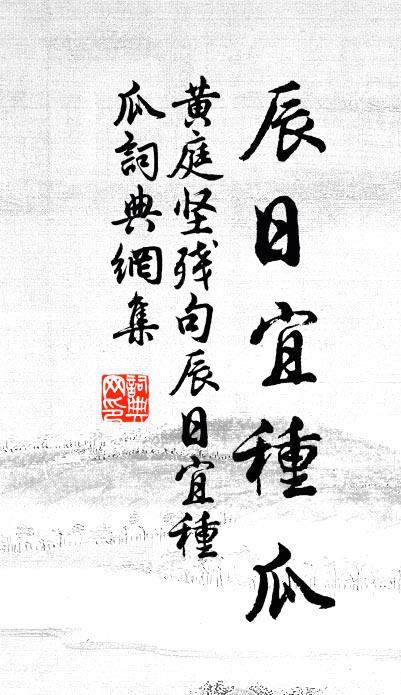 辰日宜種瓜
黃庭坚残句辰日宜種
瓜詞典網集
詞典网印